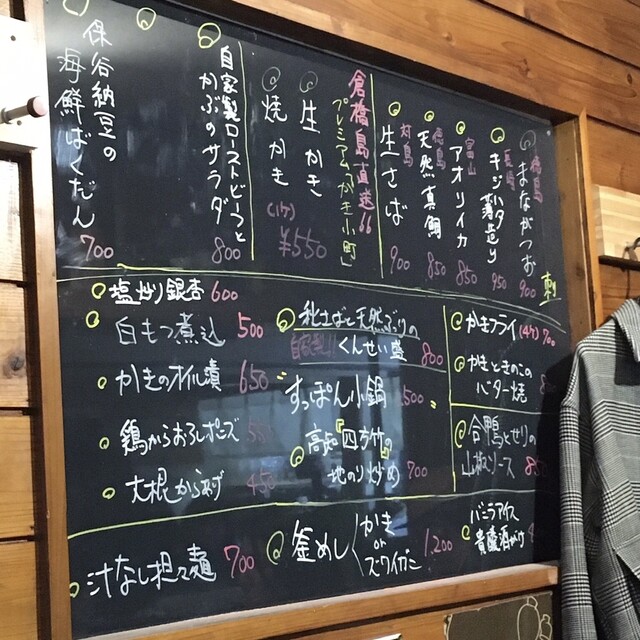 刺
徳島
まながつお
900
長崎
キジハタ薄造り
950
富山
アオリイカ
850
徳島
天然真鯛
850
対島
生さば
900
倉橋島直送
プレミアム「かき小町」
生かき
焼かき
(1ケ)
¥550
自家製ローストビーフと
かぶのサラダ
800
保谷納豆の
海鮮ばくだん
700
塩炒り銀杏 600
白もつ煮込 500
かきのオイル漬 650
鶏からおろしポン酢
大根から揚げ 450
秋さばと天然ぶりの
くんせい盛 800
すっぽん小鍋
高知「四方竹」の
地のり炒め 700
かきフライ (4ケ) 700
かきときのこの
バター焼
合鴨とせりの
山椒ソース
汁なし担々麺 700
釜めし
かき
or
ズワイガニ
1,200
バニラアイス
貴醸酒がけ